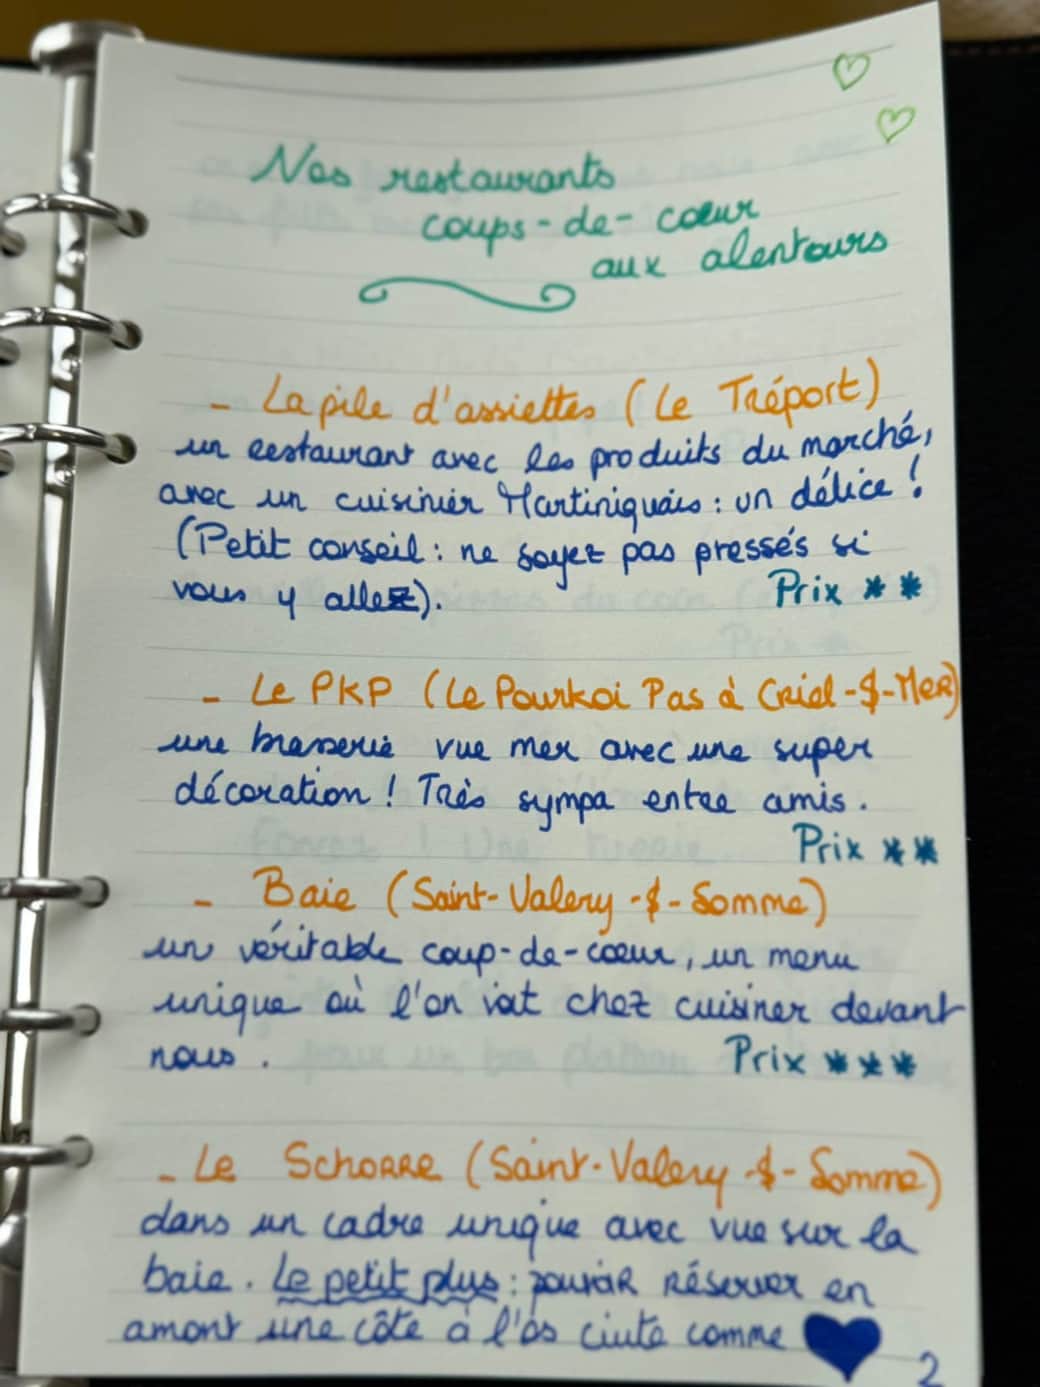 Nos restaurants
coups-de-cœur
aux alentours
- La pile d'assiettes (Le Tréport)
un restaurant avec les produits du marché,
avec un cuisinier Martiniquais : un délice !
(Petit conseil : ne soyez pas pressés si
vous y allez).
Prix **
- Le PKP (Le Pourkoi Pas à Criel-$-Mer)
une brasserie vue mer avec une super
décoration ! Très sympa entre amis.
Prix **
- Baie (Saint-Valery-$-Somme)
un véritable coup-de-cœur, un menu
unique où l'on voit chez cuisiner devant
nous.
Prix ***
- Le Schorre (Saint-Valery-$-Somme)
dans un cadre unique avec vue sur la
baie. Le petit plus : pouvoir réserver en
amont une côte à l'os cuite comme
2